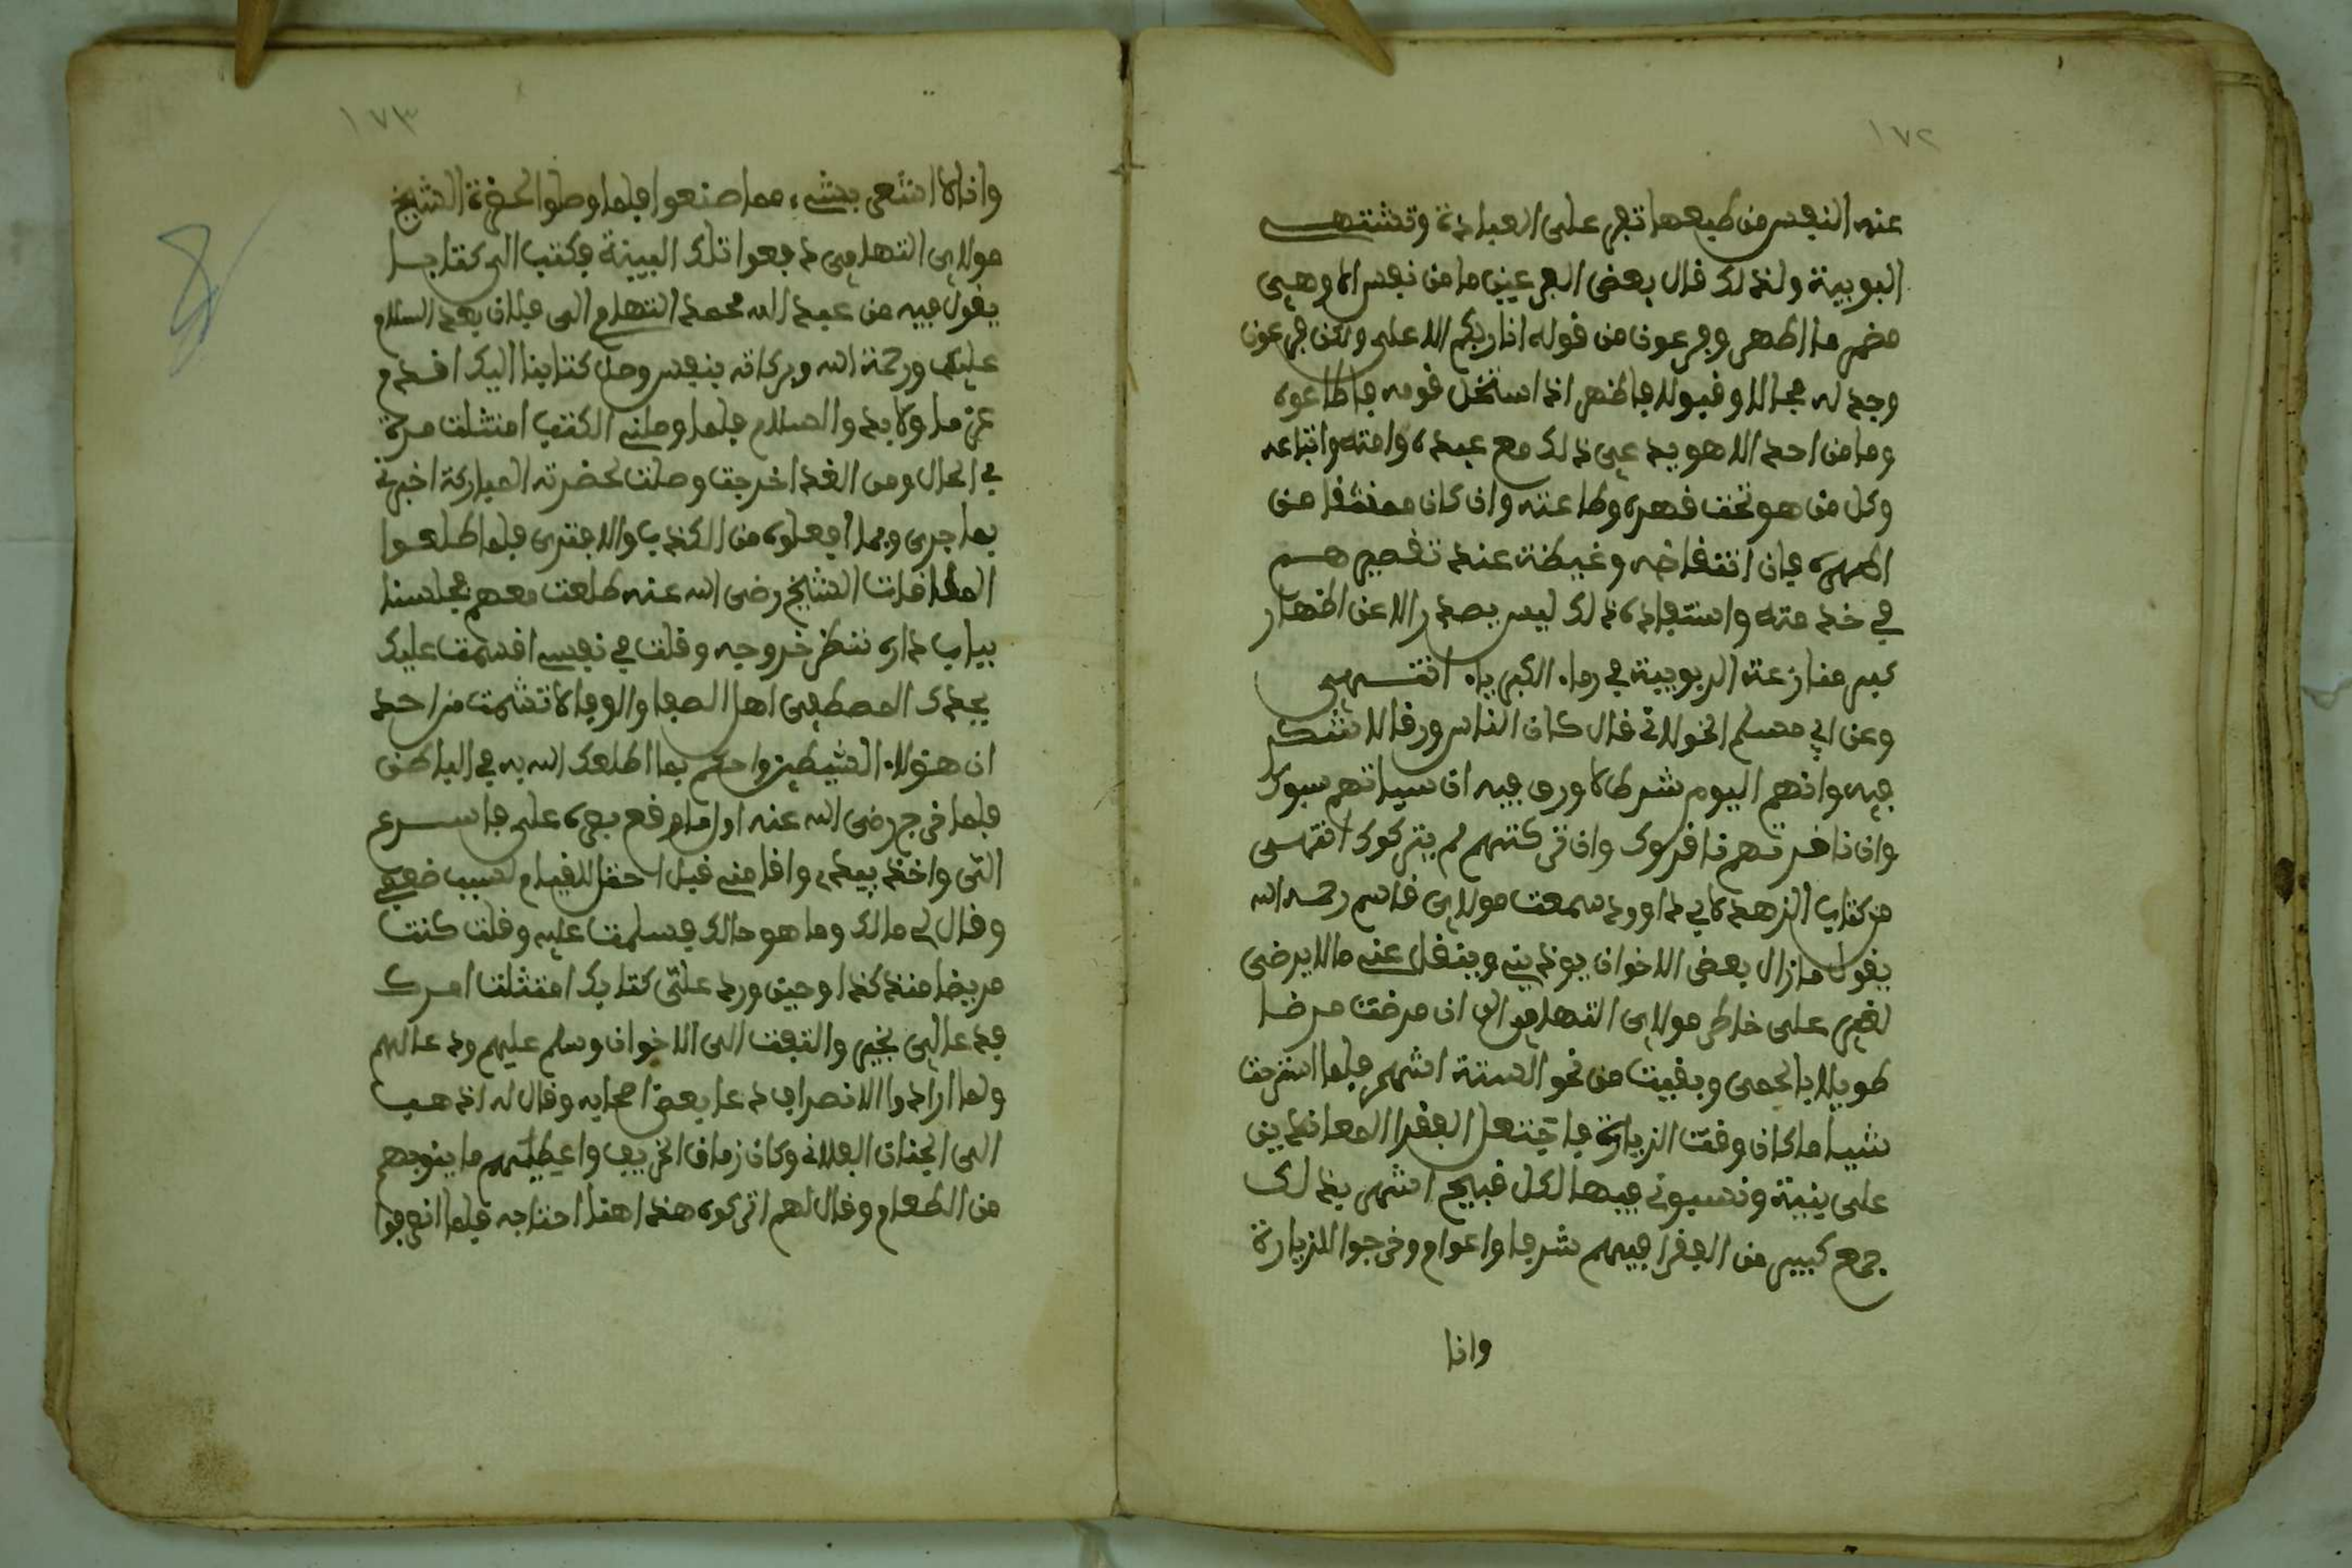 ١٧٢
عنه النفس من طبعها تفر على العبادة وتشتهي
الربوبية ولذلك قال بعض العرفين ما من نفس الا وهي
مضمر ما اظهر وفرعون من قوله انا ربكم الاعلى ولكن فرعون
وجد له مجالا وقبولا فاظهر اذ استخف قومه فاطاعوه
وما من احد الا هو يدعي ذلك مع عبده وامته واتباعه
وكل من هو تحت قهره وطاعته وان كان ممتنعا من
اظهره فان انتفاخه وغيظه عند تقصيرهم
في خدمته واستبعاده ذلك ليس يصدر الا عن اظهار
كبر منازعة الربوبية في رداء الكبرياء انتهى
وعن ابي مسلم الخولاني قال كان الناس ورقا لا شوك
فيه وانهم اليوم شوك لا ورق فيه ان سيبتهم سبوك
وان نافرتهم نافروك وان تركتهم لم يتركوك انتهى
من كتاب الزهد لابي داوود سمعت مولاي قاسم رحمه الله
يقول ما زال بعض الاخوان يوذيني وينقل عني ما لا يرضى
لغير على خاطر مولاي التهامي الى ان مرضت مرضا
طويلا بالحمى وبقيت من نحو الستة اشهر فلما استرحت
شيا ما كان وقت الزيارة فاجتعل الفقرا المعاندين
على بينة ونسبوني فيها لكل قبيح اشهر بذلك
جمع كبير من الفقرا فيهم شرفا واعوام وخرجوا للزيارة
وانا
١٧٣
وانا لا اشعر بشيء مما صنعوا فلما وصلوا لحضرة الشيخ
مولاي التهامي دفعوا تلك البينة فكتب الي كتابا
يقول فيه من عبد الله محمد التهامي الى فلان بعد السلام
عليك ورحمة الله وبركاته بنفس وصول كتابنا اليك اقدم
عن ما ولا بد والسلام فلما وصلني الكتب امتثلت امره
في الحال ومن الغد اخرجت وصلت لحضرته المباركة اخبرته
بما جرى وبما افعلوه من الكذب والافترى فلما طلعوا
الملاقات الشيخ رضي الله عنه طلعت معهم فجلسنا
بباب داره ننظر خروجه وقلت في نفسي اقسمت عليك
بجدك المصطفى اهل الصفا والوفا لا تشمت من احد
ان هؤلاء الشيطين واحكم بما اطلعك الله به في الباطن
فلما خرج رضي الله عنه اول ما وقع بصره على فاسرع
الي واخذ بيدي واقامني قبل احفل للقيام لسبب ضعفي
وقال لي مالك وما هو حالك فسلمت عليه وقلت كنت
مريضا منذ كذا وحين ورد علي كتابك امتثلت امرك
فدعا لي بخير والتفت الى الاخوان وسلم عليهم ودعا لهم
ولما ارادوا الانصراف دعا بعض اصحابه وقال له اذهب
الى الجنان الفلاني وكان زمان الخريف واعطيهم ما ينوبهم
من الطعام وقال لهم اتركوه هذا هنا احتاجه فلما انصرفوا